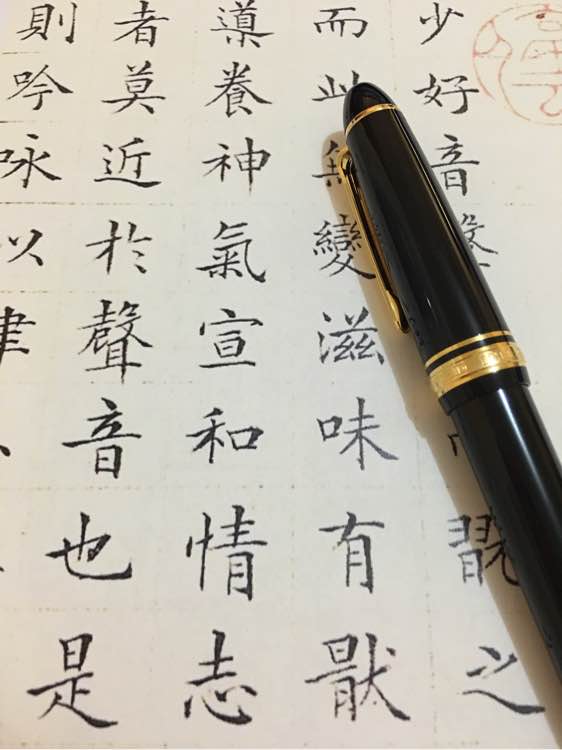 少好音聲翫之
而此無變滋味有猒
導養神氣宣和情志
者莫近於聲音也是
則吟咏以